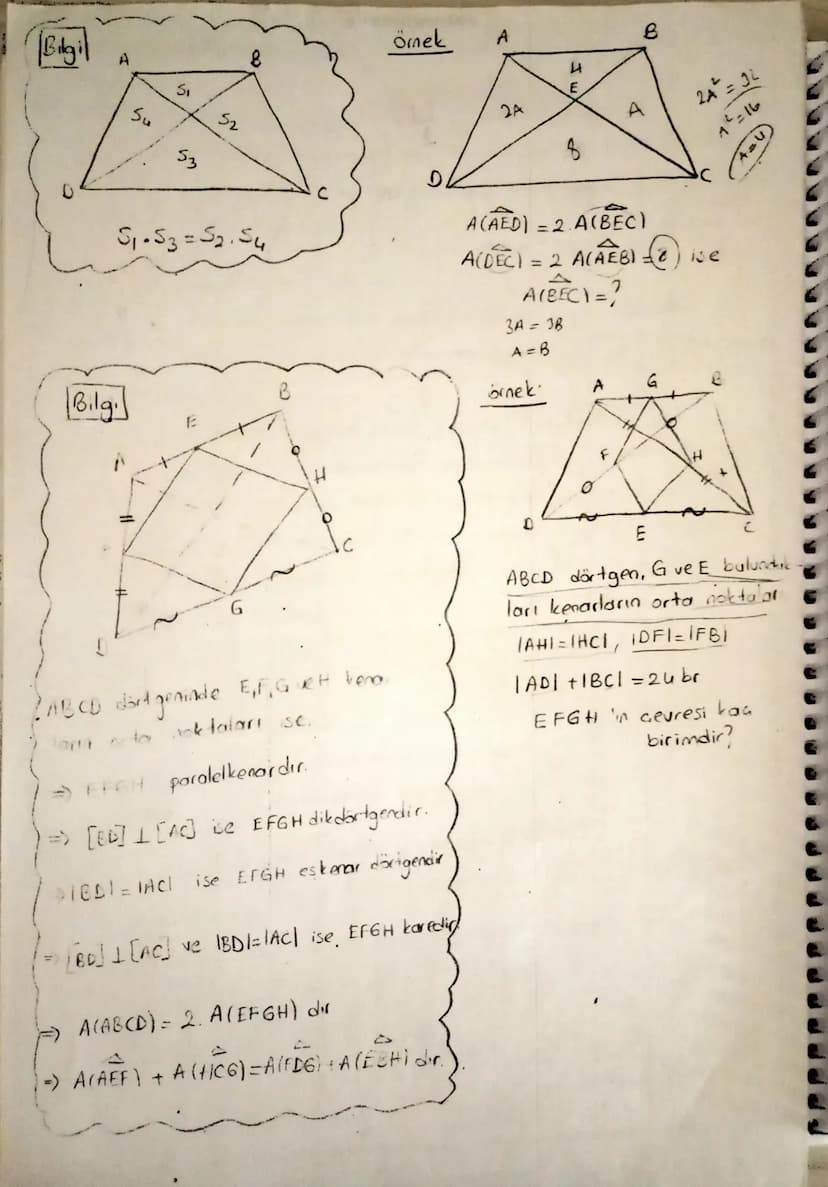 Bilgi
A B
S₁
S₄ S₂
S₃
D C
S₁.S₃=S₂.S₄
örnek
A B
4
E
2A A
8
D C
A²=16
A=4
A(AED) = 2.A(BEC)
A(DEC) = 2 A(AEB) = 8 ise
A(BEC)=?
Bilgi
B
E
A
H
C
G
ABCD dörtgeninde E,F,G ve H kena
ların orta noktaları ise.
=> EFGH paralelkenardır.
=> [BD] ⊥ [AC] ise EFGH dikdörtgendir.
|BD| = |AC| ise EFGH eşkenar dörtgendir
=> [BD] ⊥ [AC] ve |BD|=|AC| ise. EFGH karedir
=> A(ABCD) = 2. A(EFGH) dır
=> A(AEF) + A(HCG)=A(FDG)+A(EBH) dır.
örnek.
A G B
F H
D E C
ABCD dörtgen, G ve E bulunduk-
ları kenarların orta noktalar
|AH|=|HC|, |DF|=|FB|
|AD| + |BC| = 24 br
EFGH 'ın çevresi kaç
birimdir?